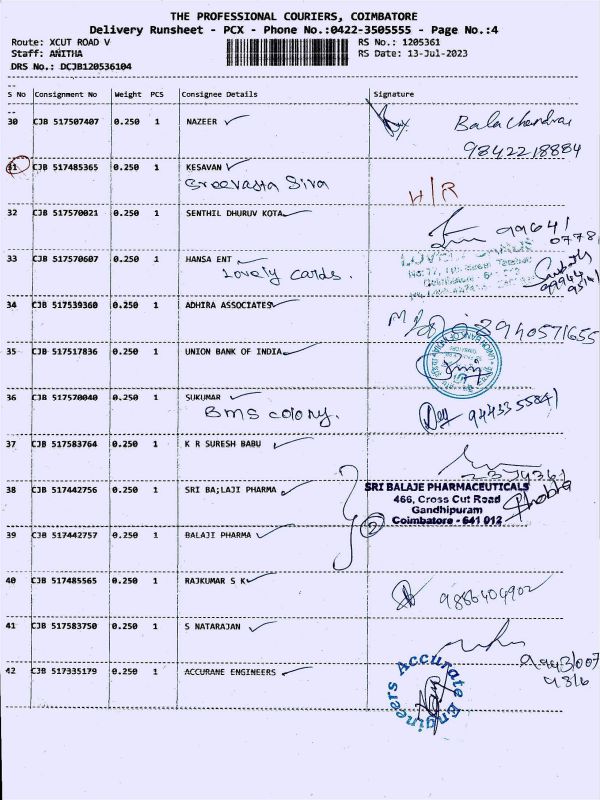 THE PROFESSIONAL COURIERS, COIMBATORE
Delivery Runsheet - PCX - Phone No.:0422-3505555 - Page No.:4
Route: XCUT ROAD V RS No.: 1205361
Staff: ANITHA RS Date: 13-Jul-2023
DRS No.: DCJB120536104
S No Consignment No Weight PCS Consignee Details Signature
30 CJB 517507407 0.250 1 NAZEER Bala Chandran
9842218884
31 CJB 517485365 0.250 1 KESAVAN
Sreevasta Siva H/R
32 CJB 517570021 0.250 1 SENTHIL DHURUV KOTA 99641
07781
33 CJB 517570607 0.250 1 HANSA ENT
Lovely cards.
34 CJB 517539360 0.250 1 ADHIRA ASSOCIATES
8940571655
35 CJB 517517836 0.250 1 UNION BANK OF INDIA
36 CJB 517570040 0.250 1 SUKUMAR
Bms colony. 9443355841
37 CJB 517583764 0.250 1 K R SURESH BABU
38 CJB 517442756 0.250 1 SRI BA;LAJI PHARMA
SRI BALAJE PHARMACEUTICALS
466, Cross Cut Road
Gandhipuram
Coimbatore - 641 012
Shobha
2
39 CJB 517442757 0.250 1 BALAJI PHARMA
40 CJB 517485565 0.250 1 RAJKUMAR S K 9886404902
41 CJB 517583750 0.250 1 S NATARAJAN
42 CJB 517335179 0.250 1 ACCURANE ENGINEERS
Accurate Engineers